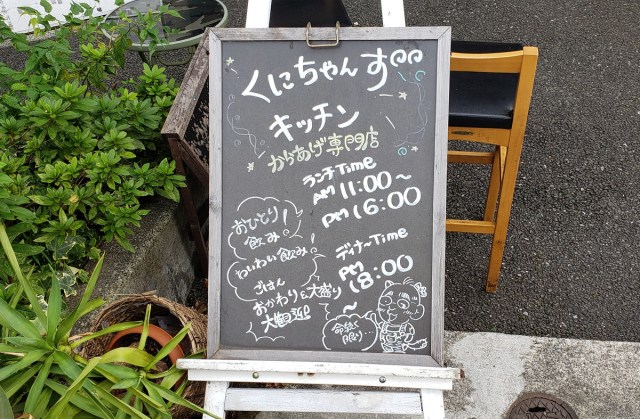 くにちゃんず
キッチン
からあげ専門店
ランチTime
AM 11:00〜
PM 16:00
ディナーTime
PM
18:00
〜
おひとり
飲み!
わいわい飲み
ごはん
おかわり&大盛り
命続く
限り…